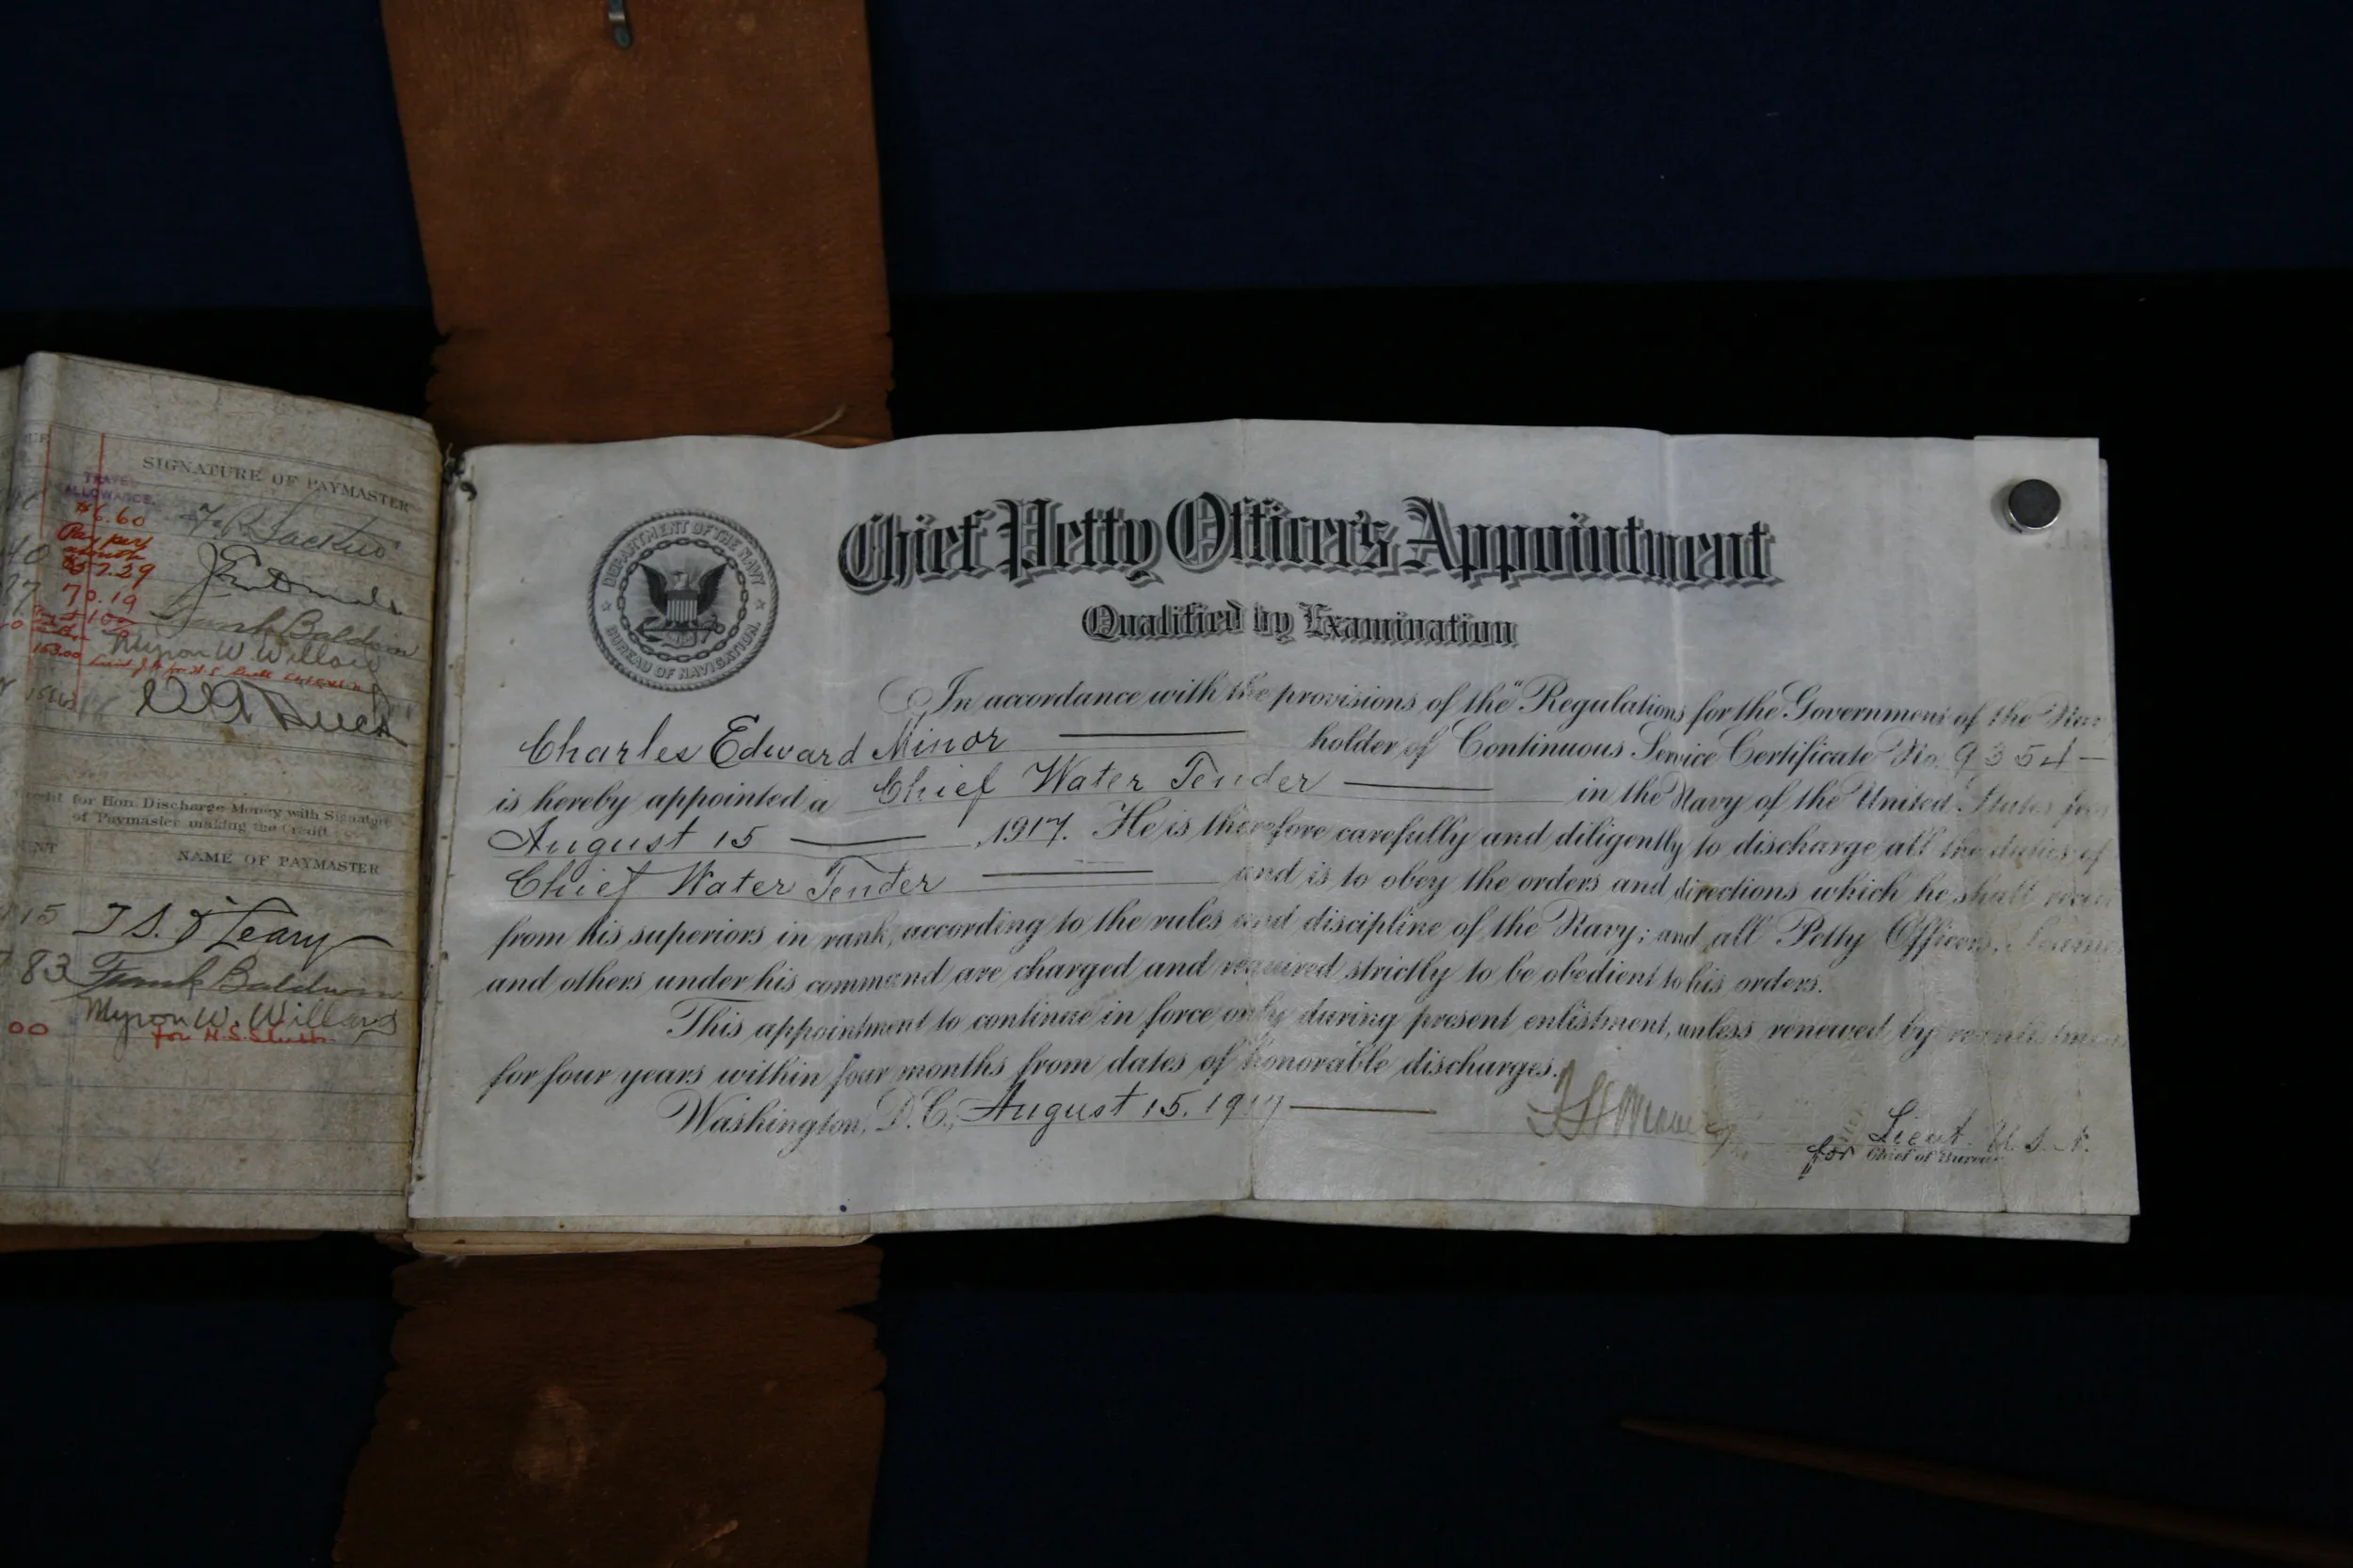 SIGNATURE OF PAYMASTER
TRAVEL
ALLOWANCE.
$6.60
Pay per
month
$57.29
70.19
Frank Baldwin
Myron W. Willard
153.00
for Hon. Discharge Money with Signature
of Paymaster making the Credit.
NAME OF PAYMASTER
15 T S. O'Leary
83 Frank Baldwin
Myron W. Willard
00 for H.S.
DEPARTMENT OF THE NAVY
BUREAU OF NAVIGATION.
Chief Petty Officer's Appointment
Qualified by Examination
In accordance with the provisions of the "Regulations for the Government of the
Charles Edward Minor holder of Continuous Service Certificate No. 9354
is hereby appointed a Chief Water Tender in the Navy of the United States
August 15 1917. He is therefore carefully and diligently to discharge all the duties of
Chief Water Tender and is to obey the orders and directions which he shall
from his superiors in rank, according to the rules and discipline of the Navy; and all Petty Officers,
and others under his command are charged and required strictly to be obedient to his orders.
This appointment to continue in force only during present enlistment, unless renewed by
for four years within four months from dates of honorable discharges.
Washington, D.C., August 15, 1917
Lieut. U.S.N.
for Chief of Bureau